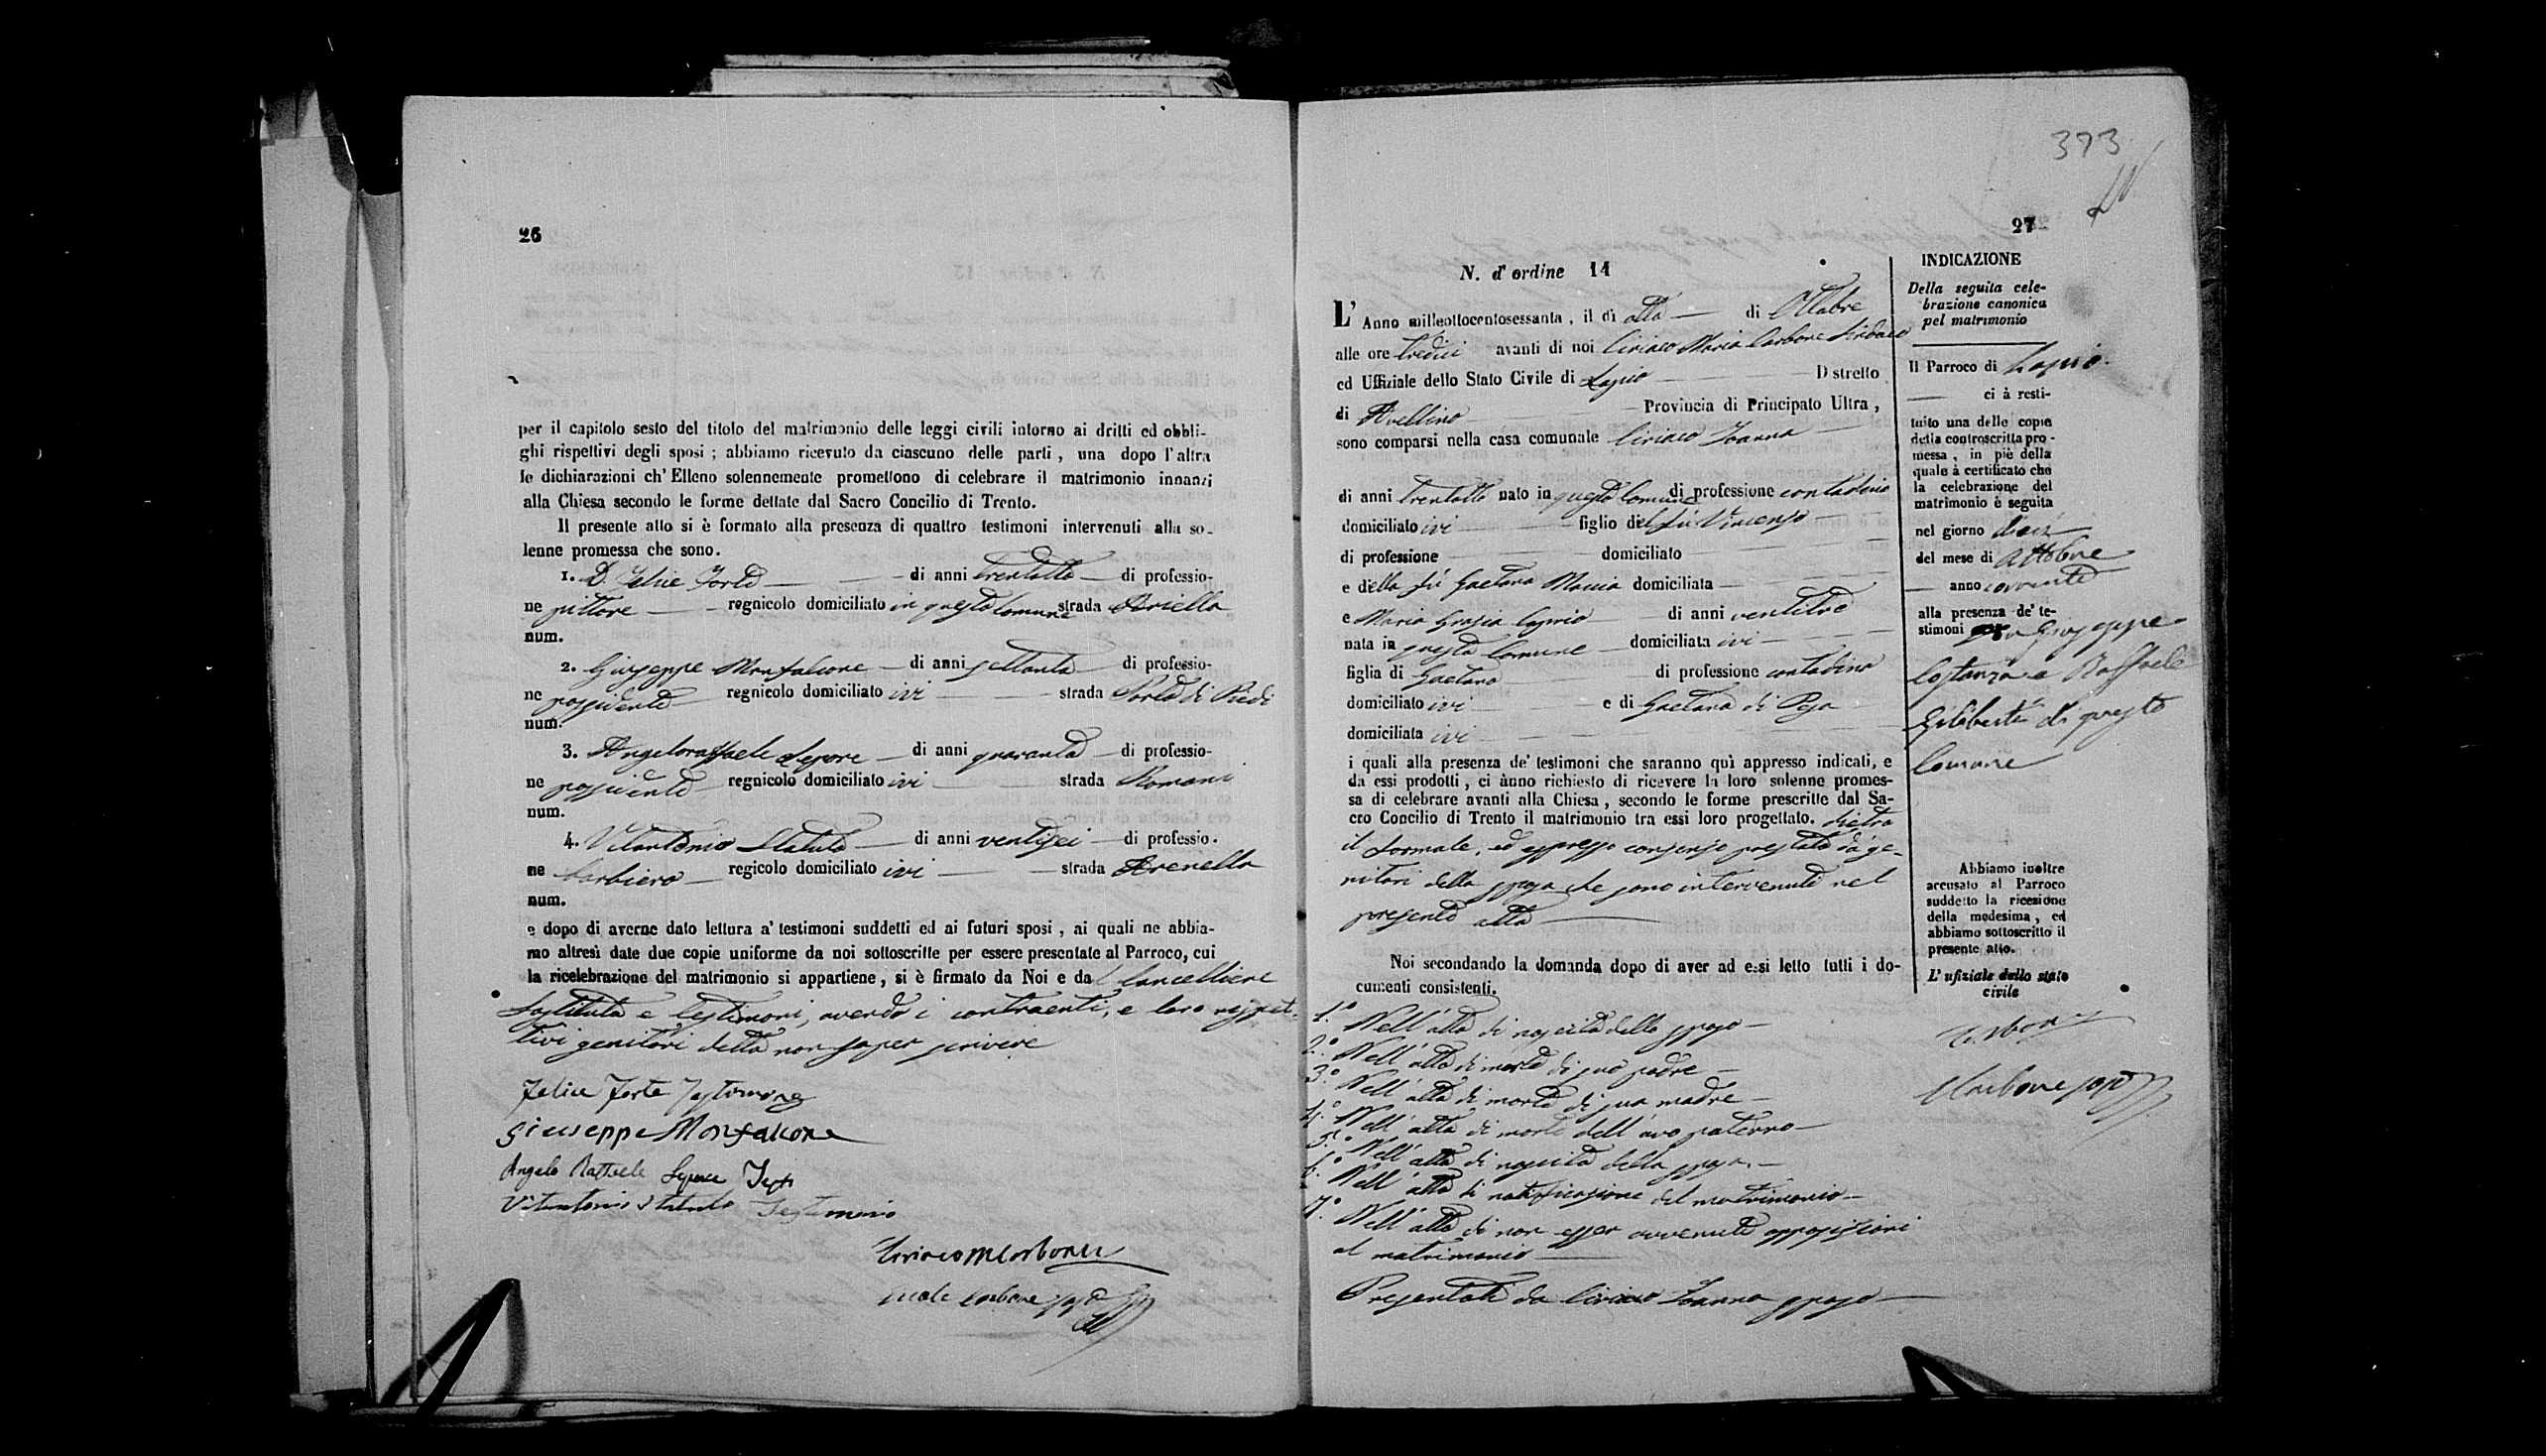 26
per il capitolo sesto del titolo del matrimonio delle leggi civili intorno ai dritti ed obbli-
ghi rispettivi degli sposi ; abbiamo ricevuto da ciascuno delle parti , una dopo l'altra
le dichiarazioni ch' Elleno solennemente promettono di celebrare il matrimonio innanzi
alla Chiesa secondo le forme dettate dal Sacro Concilio di Trento.
Il presente atto si è formato alla presenza di quattro testimoni intervenuti alla so-
lenne promessa che sono.
1. D. Felice Forte di anni trentotto di professio-
ne pittore regnicolo domiciliato in questo Comune strada Ariella
num.
2. Giuseppe Monfalcone di anni settanta di professio-
ne possidente regnicolo domiciliato ivi strada Porta di Piedi
num.
3. Angeloraffaele Lepore di anni quaranta di professio-
ne possidente regnicolo domiciliato ivi strada Romani
num.
4. Vitantonio Statuto di anni ventisei di professio.
ne barbiero regicolo domiciliato ivi strada Arenella
num.
e dopo di averne dato lettura a' testimoni suddetti ed ai futuri sposi , ai quali ne abbia-
mo altresì date due copie uniforme da noi sottoscritte per essere presentate al Parroco, cui
la ricelebrazione del matrimonio si appartiene , si è firmato da Noi e dal Cancelliere
Sostituto e testimoni, avendo i contraenti, e loro rispet-
tivi genitori detto non saper scrivere
Felice Forte Testimone
Giuseppe Monfalcone
Angelo Raffaele Lepore Test
Vitantonio Statuto Testimonio
Ciriaco M Carbone
Carbone
373
27
N. d' ordine 14
L' Anno milleottocentosessanta , il dì otto di Ottobre
alle ore tredici avanti di noi Ciriaco Maria Carbone Sindaco
ed Uffiziale dello Stato Civile di Lapio D stretto
di Avellino Provincia di Principato Ultra ,
sono comparsi nella casa comunale Ciriaco Ioanna
di anni trentotto nato in questo Comune di professione contadino
domiciliato ivi figlio del fu Vincenzo
di professione domiciliato
e della fu Gaetana Maccia domiciliata
e Maria Grazia Caprio di anni ventitre
nata in questo Comune domiciliata ivi
figlia di Gaetano di professione contadino
domiciliato ivi e di Gaetana di Pesa
domiciliata ivi
i quali alla presenza de' testimoni che saranno quì appresso indicati, e
da essi prodotti , ci ànno richiesto di ricevere la loro solenne promes-
sa di celebrare avanti alla Chiesa , secondo le forme prescritte dal Sa-
cro Concilio di Trento il matrimonio tra essi loro progettato. dietro
il formale, ed espresso consenso prestato da' ge-
nitori della sposa che sono intervenuti nel
presente atto
Noi secondando la domanda dopo di aver ad essi letto tutti i do-
cumenti consistenti.
1.° Nell' atto di nascita dello sposo
2.° Nell' atto di morte di suo padre
3.° Nell' atto di morte di sua madre
4.° Nell' atto di morte dell' avo paterno
5.° Nell' atto di nascita della sposa
6.° Nell' atto di notificazione del matrimonio
7.° Nell' atto di non esser avvenute opposizioni
al matrimonio
Presentati da Ciriaco Ioanna sposo
INDICAZIONE
Della seguita cele-
brazione canonica
pel matrimonio
Il Parroco di Lapio.
ci à resti-
tuito una delle copie
della controscritta pro-
messa , in piè della
quale à certificato che
la celebrazione del
matrimonio è seguita
nel giorno dieci
del mese di Ottobre
anno corrente
alla presenza de' te-
stimoni Giuseppe
Costanza e Raffaele
Giliberti di questo
Comune
Abbiamo inoltre
accusato al Parroco
suddetto la ricezione
della medesima , ed
abbiamo sottoscritto il
presente atto.
L' ufiziale dello stato
civile
Carbone
Carbone